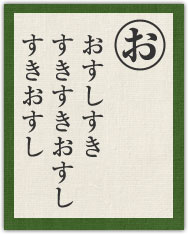 お
おすしすき
すきすきおすし
すきおすし